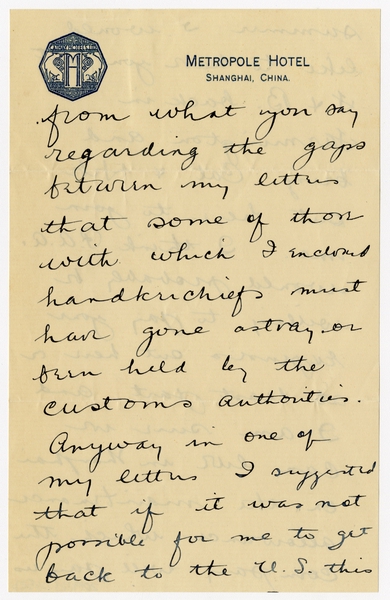 METROPOLE HOTEL
SHANGHAI, CHINA.
from what you say
regarding the gaps
between my letters
that some of those
with which I enclosed
handkerchiefs must
have gone astray or
been held by the
customs authorities.
Anyway in one of
my letters I suggested
that if it was not
possible for me to get
back to the U.S. this